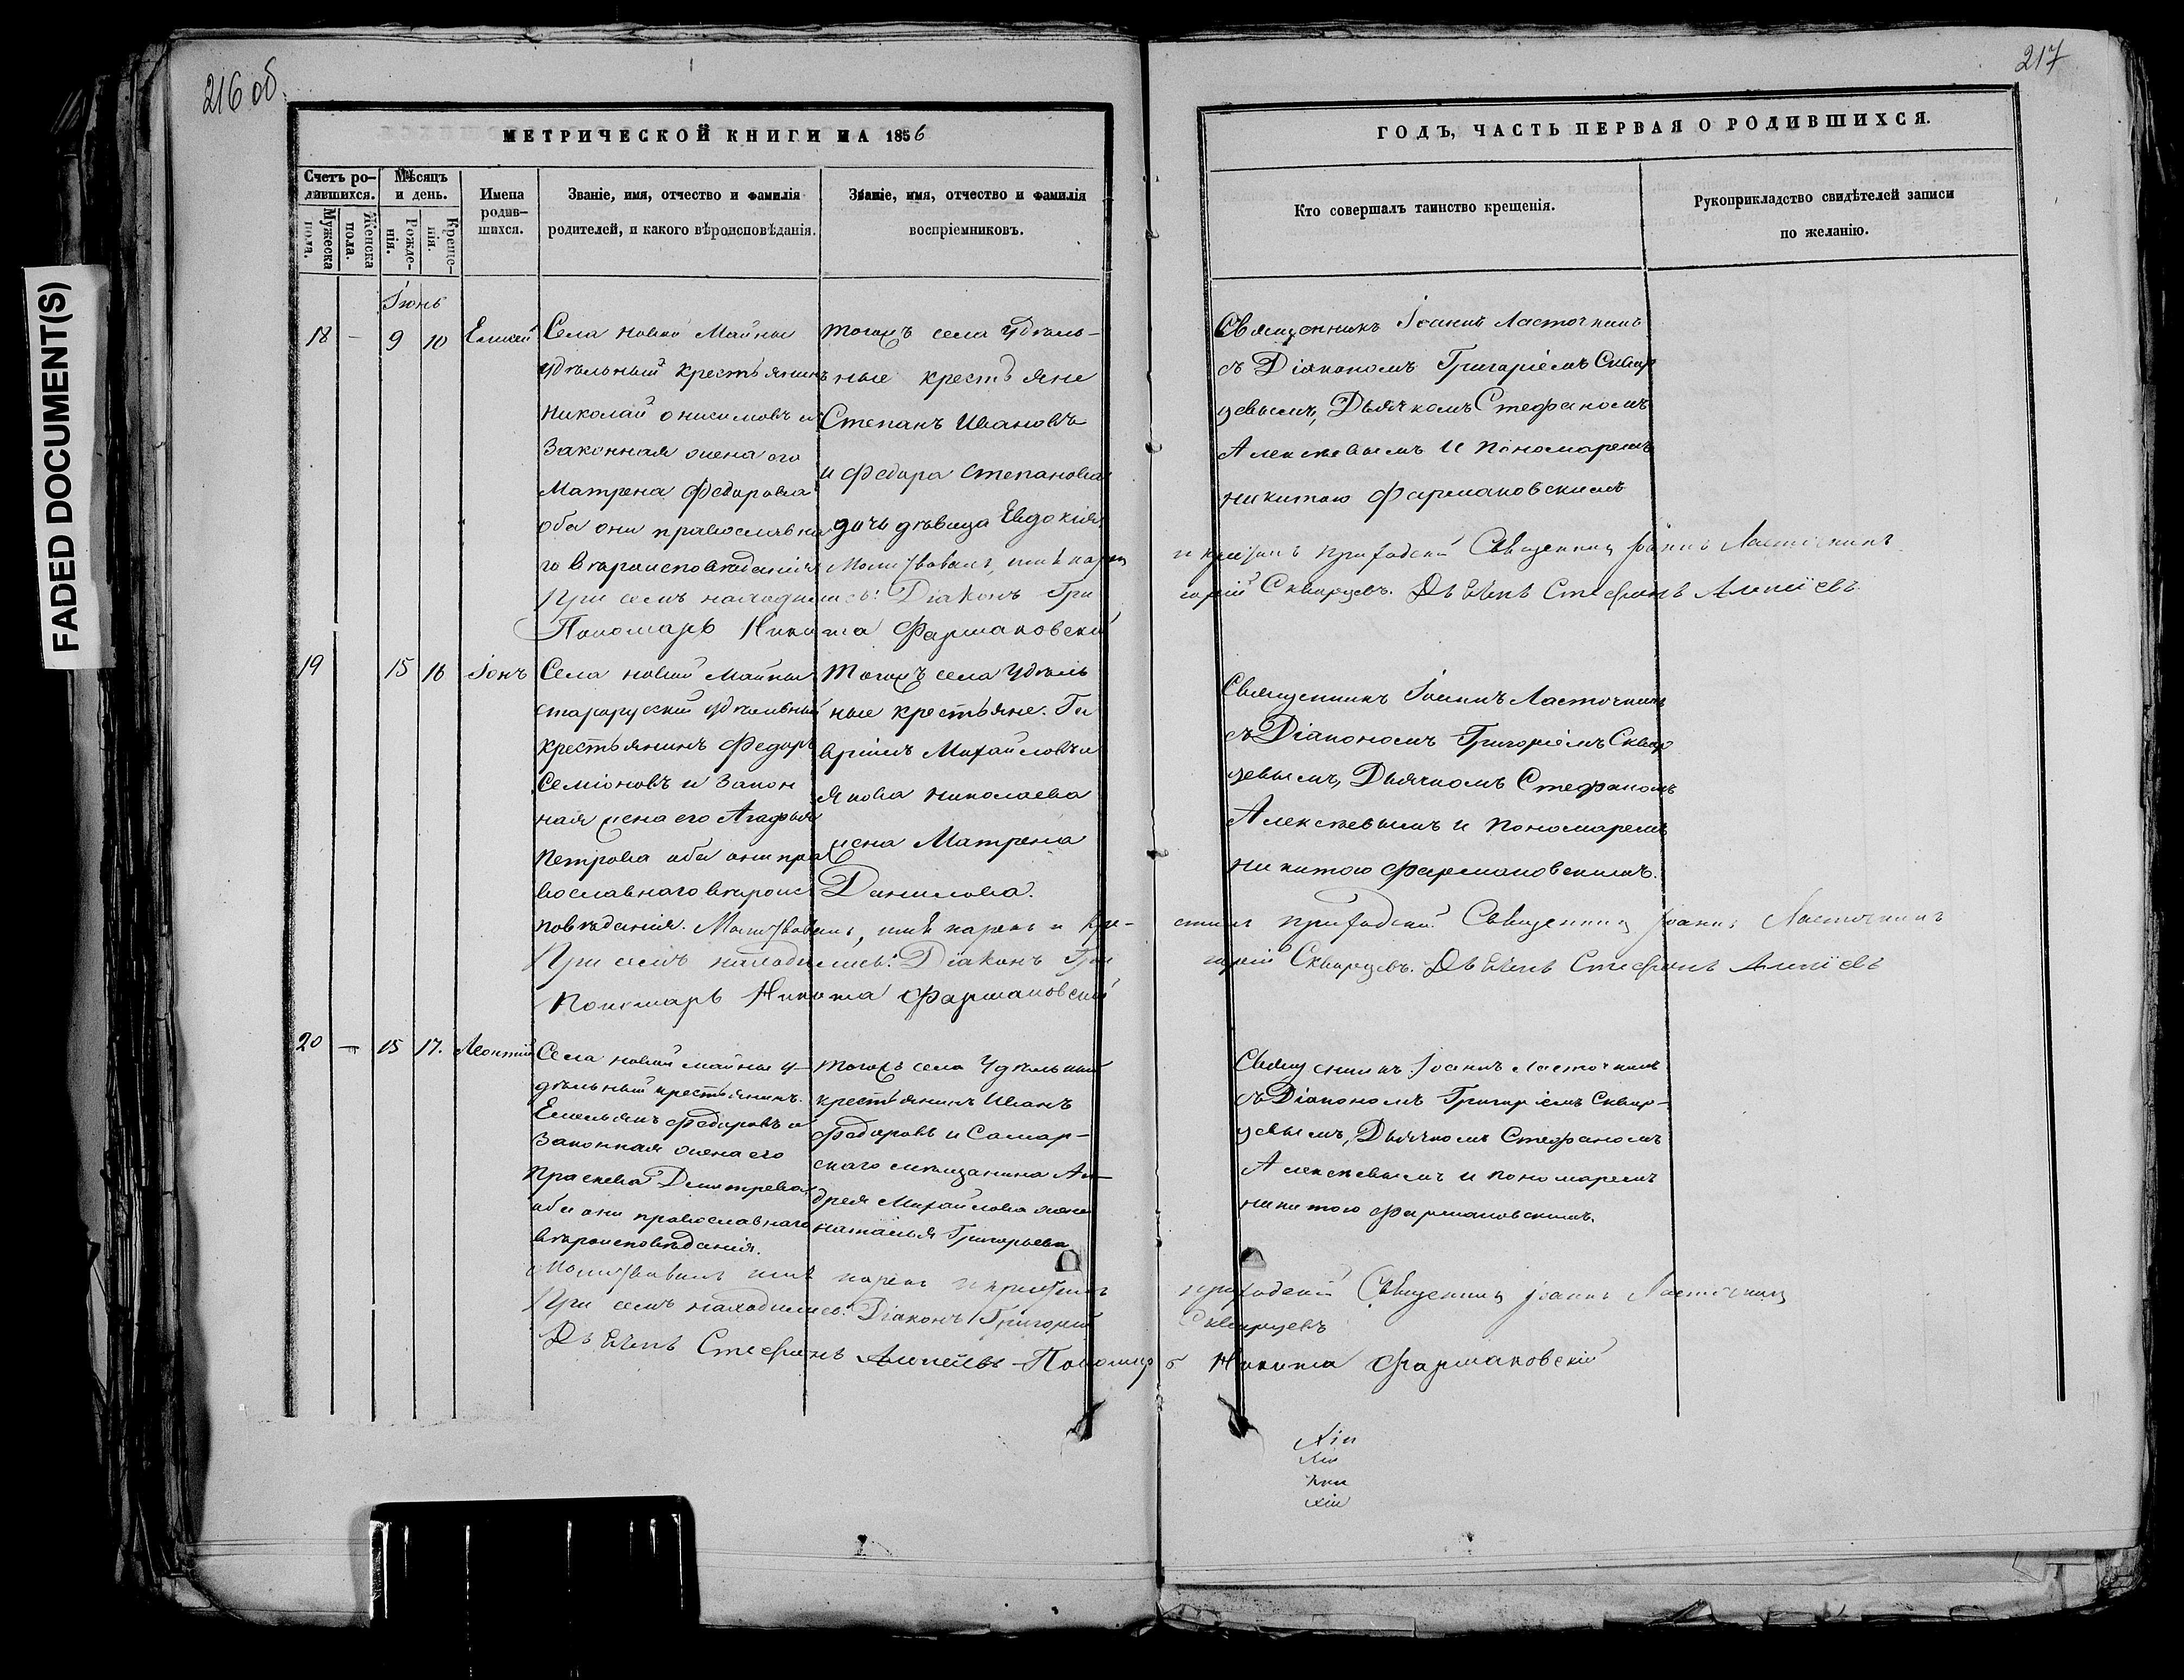 216 об.
МЕТРИЧЕСКОЙ КНИГИ НА 1856
Счетъ ро-
дившихся.
Мѣсяцъ
и день.
Имена
родив-
шихся.
Званіе, имя, отчество и фамилія
родителей, и какого вѣроисповѣданія.
Званіе, имя, отчество и фамилія
воспріемниковъ.
Мужеска
пола.
Женска
пола.
Рожде-
нія.
Креще-
нія.
Іюнь
18 — 9 10 Елисей
Села новой Майны
удѣльный крестьянинъ
Николай онисимовъ и
Законная жена его
Матрена Федорова
оба они православна
го вѣроисповѣданія
тогожъ села удѣль-
ные крестьяне
Степанъ Ивановъ
и Федора Степанова
дочь дѣвица Евдокія
Молитвовалъ, имя нарекъ
При семъ находились: Діаконъ Гри
Пономарь Никита Фармаковскій
19 15 16 Іонъ
Села новой Майны
старорусскій удѣльный
крестьянинъ Федоръ
Семіоновъ и Закон
ная жена его Агафья
Петрова оба они пра
вославнаго вѣроис
повѣданія.
Тогожъ села удѣль
ные крестьяне. Га
вріилъ Михайловъ и
Якова Николаева
жена Матрена
Данилова.
Молитвовалъ, имя нарекъ и кре-
При семъ находились: Діаконъ Гри
Пономарь Никита Фармаковскій
20 — 15 17. Леонтій
Села новой майны у-
дѣльный крестьянинъ.
Емельянъ Федоровъ и
Законная жена его
Праскева Димитрева
оба они православнаго
вѣроисповѣданія.
тогожъ села Удѣльный
крестьянинъ Иванъ
Федоровъ и Самар-
скаго мѣщанина Ан-
дрея Михайлова жена
наталья Григорьева
Молитвовалъ имя нарекъ и крестилъ
При семъ находились: Діаконъ Григорій
Дьячекъ Стефанъ Алексѣевъ Пономар
217
ГОДЪ, ЧАСТЬ ПЕРВАЯ О РОДИВШИХСЯ.
Кто совершалъ таинство крещенія.
Рукоприкладство свидѣтелей записи
по желанію.
Священникъ Іоаннъ Ласточкинъ
съ Діакономъ Григоріемъ Сквор
цевымъ, Дьячкомъ Стефаномъ
Алексѣевымъ и пономаремъ
никитою Фармаковскимъ
и крестилъ приходской Священникъ Іоаннъ Ласточкинъ
горій Скворцевъ. Дьячекъ Стефанъ Алексѣевъ
Священникъ Іоаннъ Ласточкинъ
съ Діакономъ Григоріемъ Сквор
цевымъ, Дьячкомъ Стефаномъ
Алексѣевымъ и пономаремъ
никитою Фармаковскимъ.
стилъ приходской Священникъ Іоаннъ Ласточкинъ
горій Скворцевъ. Дьячекъ Стефанъ Алексѣевъ
Священникъ Іоаннъ Ласточкинъ
съ Діакономъ Григоріемъ Сквор-
цевымъ, Дьячкомъ Стефаномъ
Алексѣевымъ и пономаремъ
никитою Фармаковскимъ.
приходской Священникъ Іоаннъ Ласточкинъ
Скворцевъ
ь Никита Фармаковскій
FADED DOCUMENT(S)